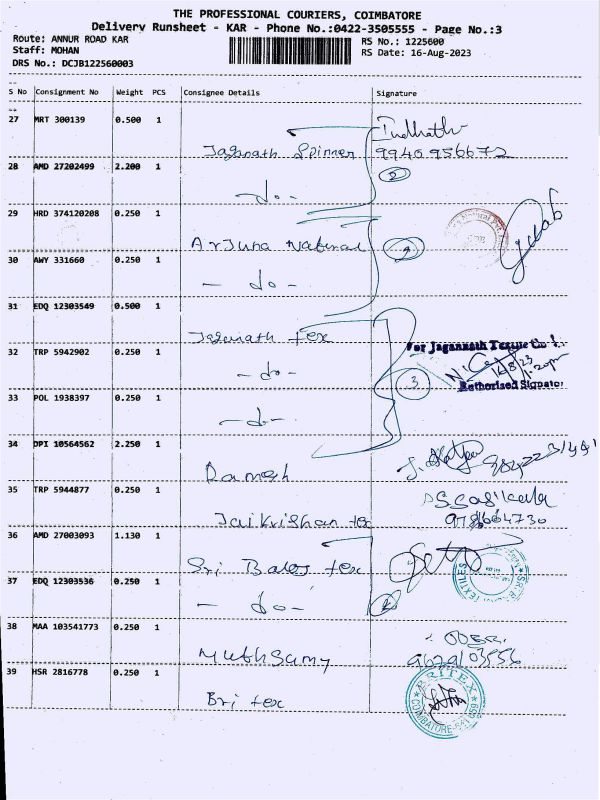 THE PROFESSIONAL COURIERS, COIMBATORE
Delivery Runsheet - KAR - Phone No.:0422-3505555 - Page No.:3
Route: ANNUR ROAD KAR RS No.: 1225600
Staff: MOHAN RS Date: 16-Aug-2023
DRS No.: DCJB122560003
S No Consignment No Weight PCS Consignee Details Signature
27 MRT 300139 0.500 1
Jaganath Spinner 9940956672
28 AMD 27202499 2.200 1 2
- do -
29 HRD 374120208 0.250 1
Arjuna Natural 2
30 AWY 331660 0.250 1
- do -
31 EDQ 12303549 0.500 1
Jaganath tex For Jagannath Textile Co
32 TRP 5942902 0.250 1 16/8/23
- do - 3 1.20pm
Authorised Signator
33 POL 1938397 0.250 1
- do -
34 DPI 10564562 2.250 1
Ramesh
35 TRP 5944877 0.250 1 Sasikala
Jaikrishan tex
36 AMD 27003093 1.130 1
Sri Balaj tex
37 EDQ 12303536 0.250 1
- do - 2
38 MAA 103541773 0.250 1
Muthsamy
39 HSR 2816778 0.250 1 BRITEX
Bri tex COIMBATORE